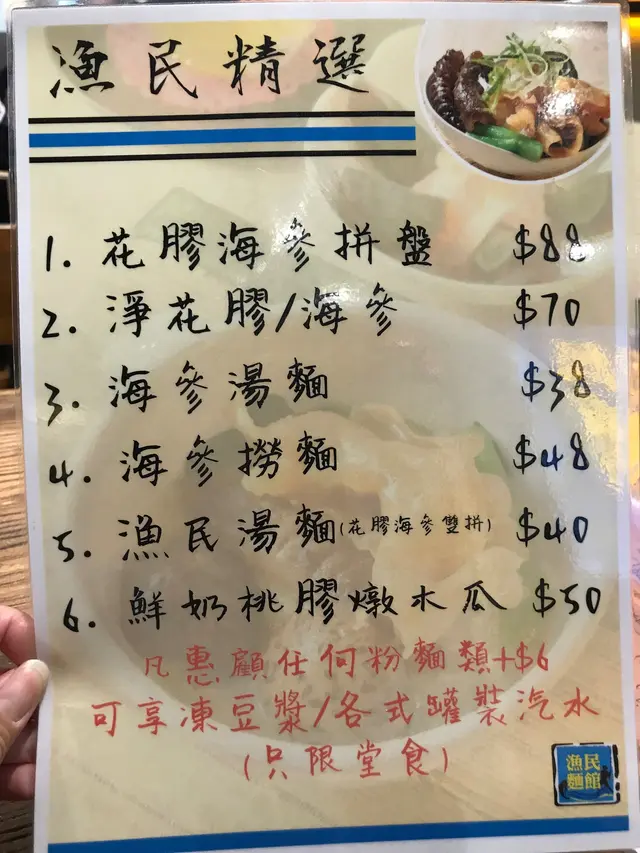 漁民精選
1. 花膠海參拼盤 $88
2. 淨花膠/海參 $70
3. 海參湯麵 $38
4. 海參撈麵 $48
5. 漁民湯麵(花膠海參雙拼) $40
6. 鮮奶桃膠燉木瓜 $50
凡惠顧任何粉麵類+$6
可享凍豆漿/各式罐裝汽水
(只限堂食)
漁民
麵館